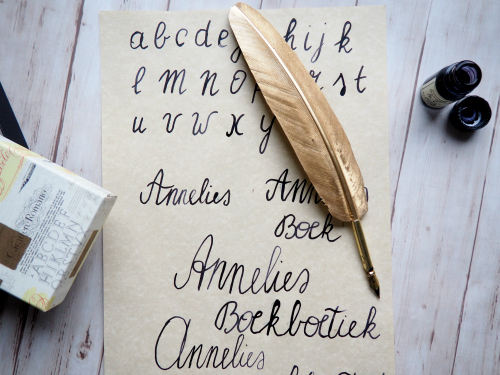 a b c d e h i j k
l m n o p r s t
u v w x y
Annelies
Boek
Annelies
Boekboetiek
Annelies